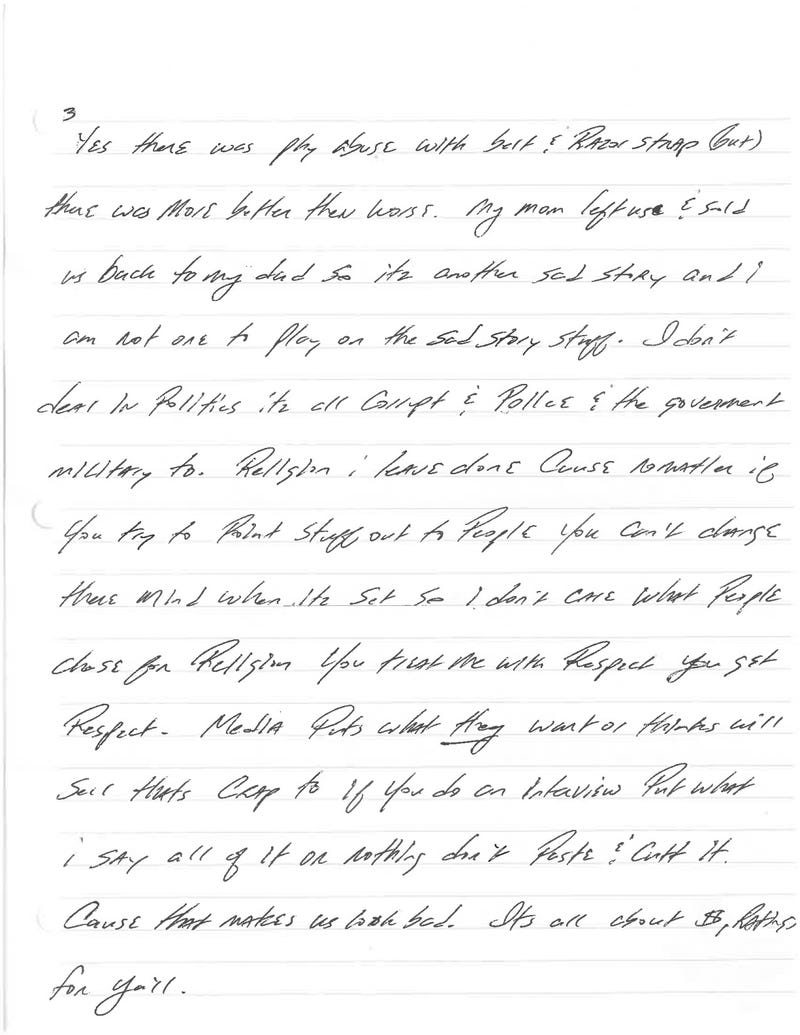 3
Yes there was phy abuse with belt & Razor strap (but)
there was more better then worse. My mom left us & sold
us back to my dad so itz another sad story and i
am not one to play on the sad story stuff. I don't
deal in Politics itz all Corrupt & Police & the goverment
military to. Religion i leave alone Cause nomatter if
you try to Point stuff out to People you can't change
there mind when itz set so I don't care what People
chose for Religion You treat me with Respect you get
Respect. Media Puts what they want or thinks will
sell thats Crap to if you do an interview Put what
i say all of it or nothing don't Paste & Cutt it.
Cause that makes us look bad. Its all about $, Ratings
for ya'll.